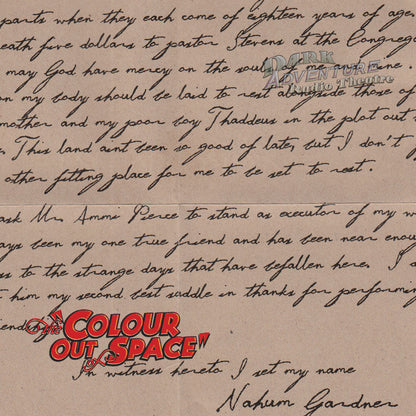 parts when they each come of eighteen years of age.
eath five dollars to pastor Stevens at the Congrega
may God have mercy on the sou me and mine.
DARK ADVENTURE Radio Theatre
on my body should be laid to rest alongside those of
mother and my poor boy Thaddeus in the plot out
. This land aint been so good of late, but I don't
other fitting place for me to be set to rest.
ask Mr. Ammi Pierce to stand as executor of my
ays been my one true friend and has been near enou
ss to the strange days that have befallen here. I
t him my second best saddle in thanks for performin
iendin
"The COLOUR
OUT of SPACE"
In witness hereto I set my name
Nahum Gardner